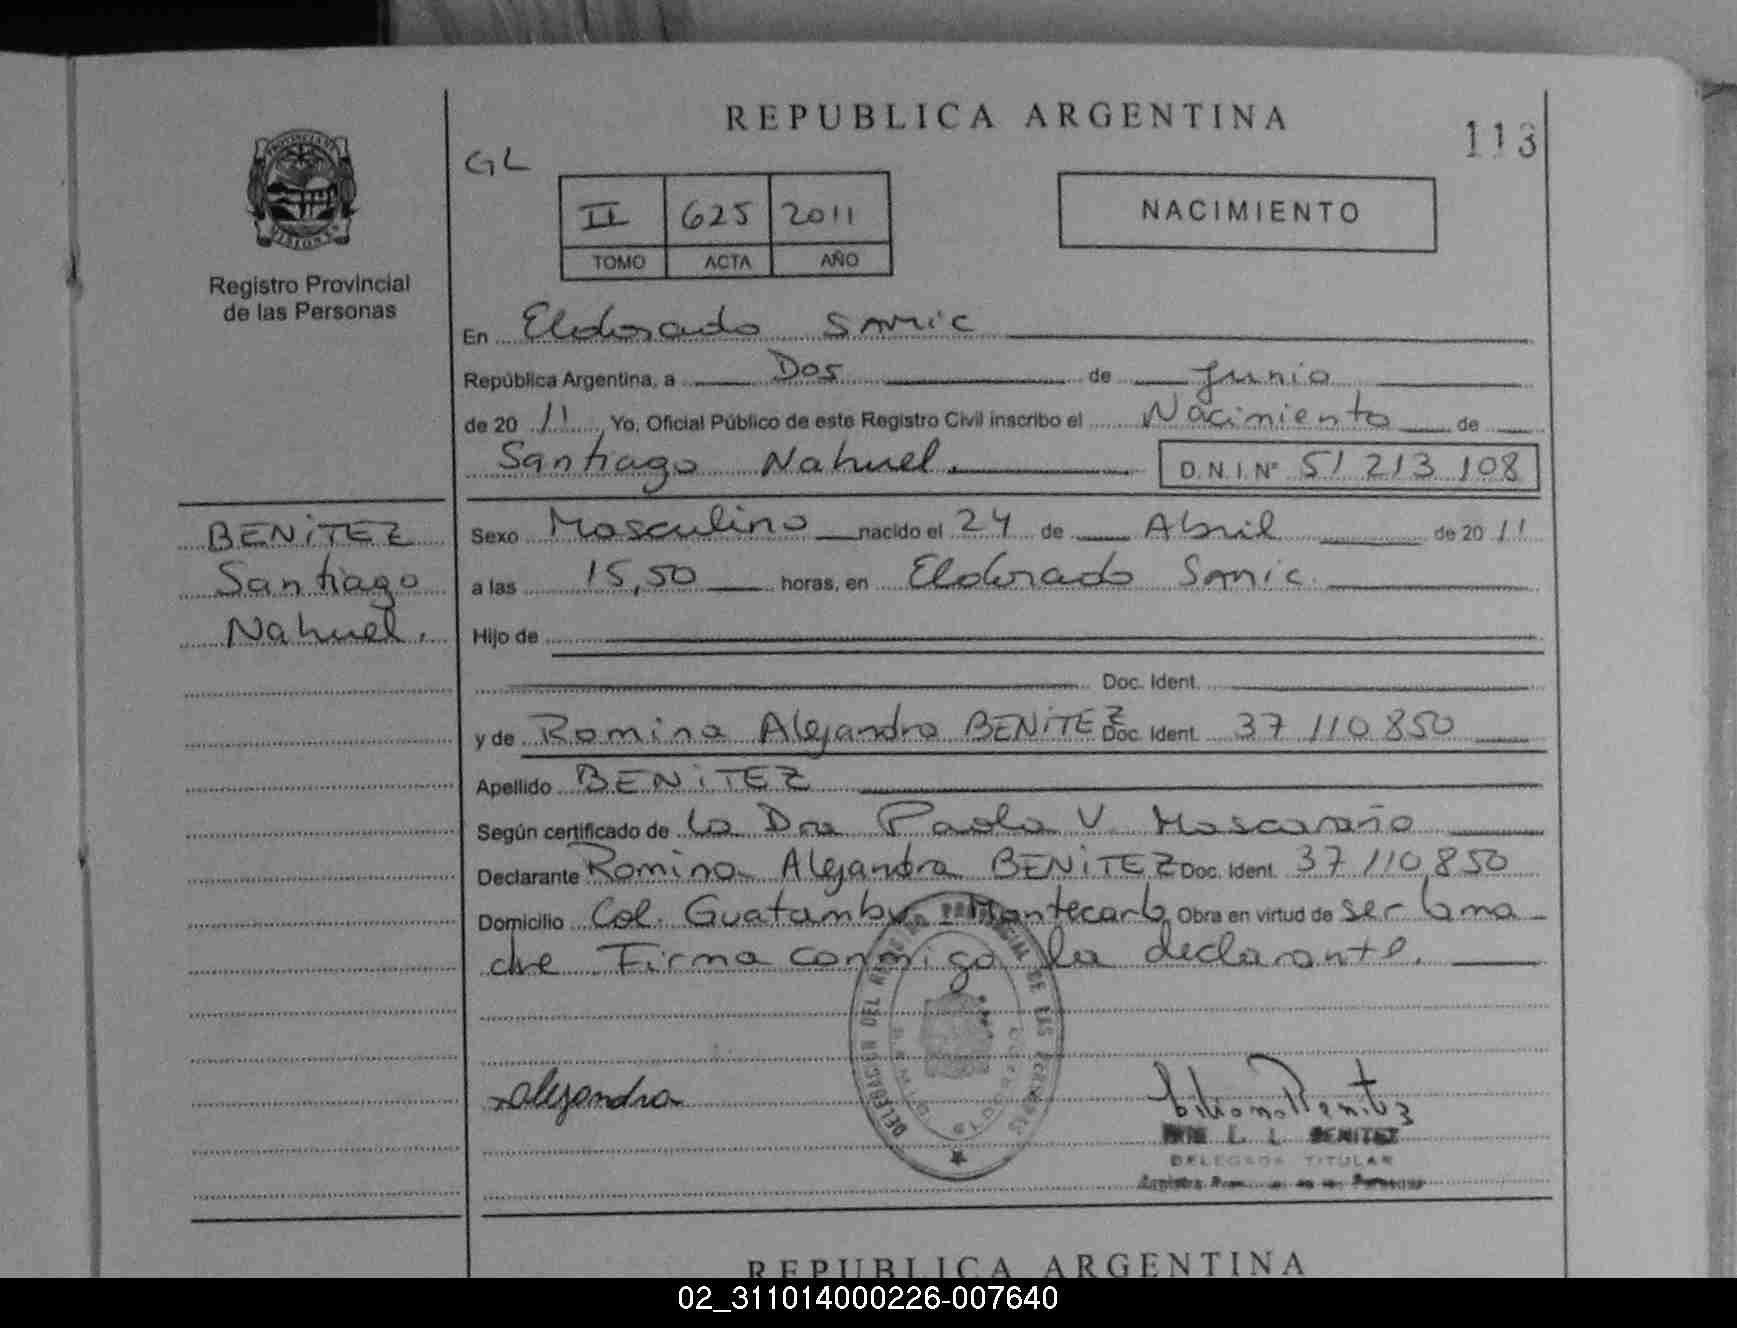 REPUBLICA ARGENTINA
113
GL
II 625 2011
TOMO ACTA AÑO
NACIMIENTO
Registro Provincial
de las Personas
En Eldorado Samic
República Argentina, a Dos de Junio
de 20 11 Yo, Oficial Público de este Registro Civil inscribo el Nacimiento de
Santiago Nahuel. D.N.I. Nº 51 213 108
BENiTEZ
Santiago
Nahuel.
Sexo Masculino nacido el 24 de Abril de 20 11
a las 15,50 horas, en Eldorado Samic.
Hijo de
Doc. Ident.
y de Romina Alejandra BENiTEZ Doc. Ident. 37 110 850
Apellido BENiTEZ
Según certificado de la Dra Paola V. Mascaraño
Declarante Romina Alejandra BENiTEZ Doc. Ident. 37 110,850
Domicilio Col. Guatambu Montecarlo Obra en virtud de ser la ma
dre Firma conmigo la declarante.
DELEGACION DEL REG. PROVINCIAL DE LAS PERSONAS
ELDORADO
Alejandra
Benitez
L. L. BENITEZ
DELEGADA TITULAR
REPUBLICA ARGENTINA
02_311014000226-007640